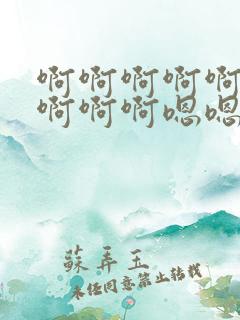 啊啊啊啊啊
啊啊啊嗯嗯
蘇弄玉
未经同意禁止转载